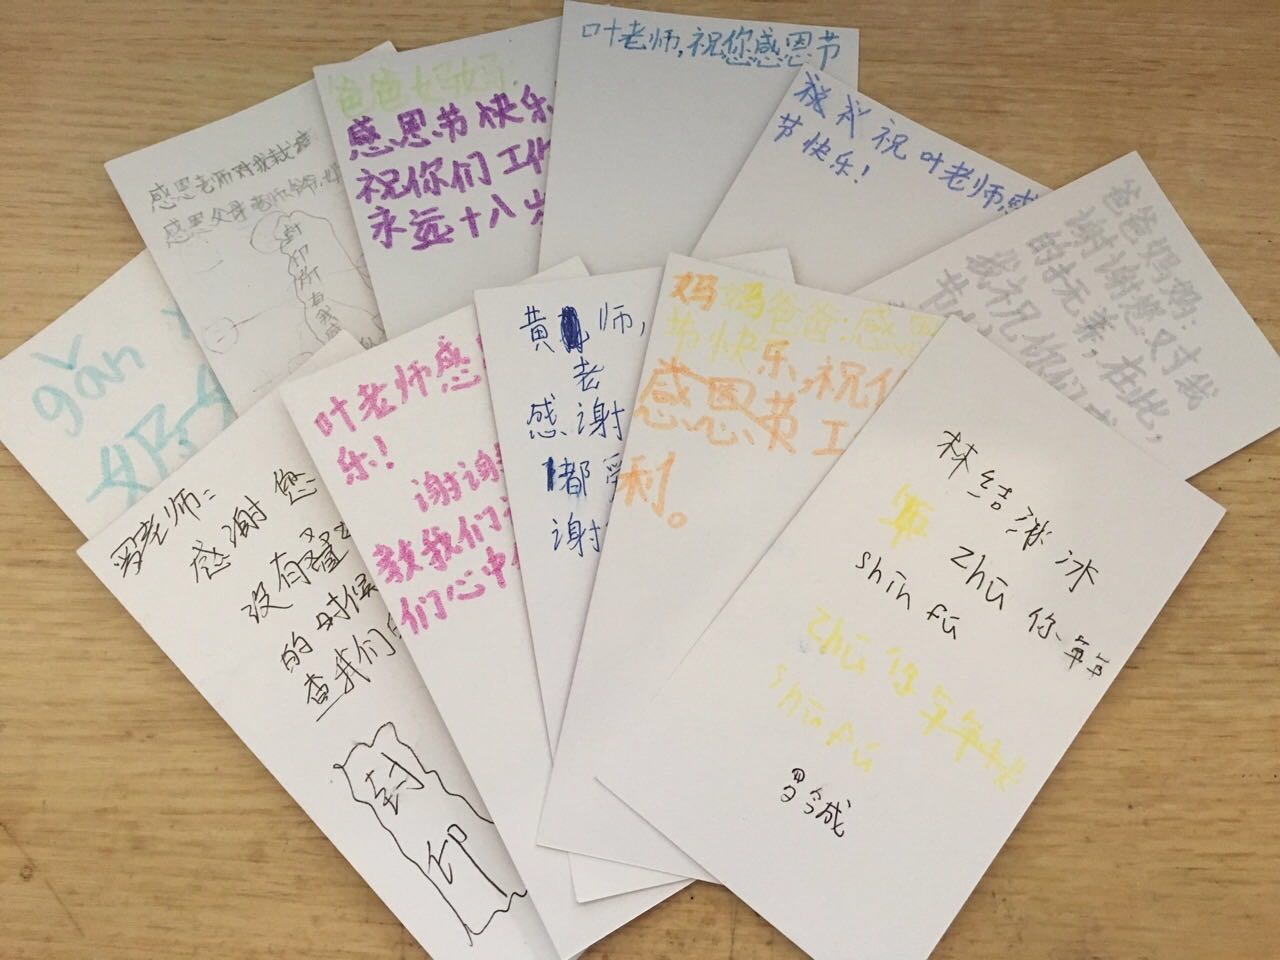 叶老师,祝你感恩节
爸爸妈妈:
感恩节快乐
祝你们工作
永远十八岁
祝叶老师感
节快乐!
感恩老师对我
感恩父母
封
印
所
有
爸爸妈妈:
谢谢您又对我
的抚养,在此,
我祝你们
节
gǎn
叶老师感
乐!
谢谢
教我们
们心中
黄师,
老
感谢
都受
谢
妈妈爸爸:感恩
节快乐,祝你
感恩节工
利。
罗老师:
感谢您
没有
的时候
查我们
封
印
林结冰冰
年zhū你年年
shin fū
zhū你年年
shin fū
罗令诚